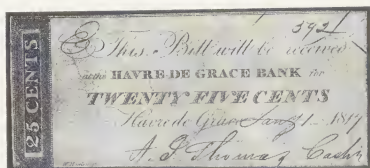 592
This Bill will be received
at the HAVRE-DE GRACE BANK for
TWENTY FIVE CENTS
Havre de Grace Jany 1 1817
A. J. Thomas Cash
25 CENTS